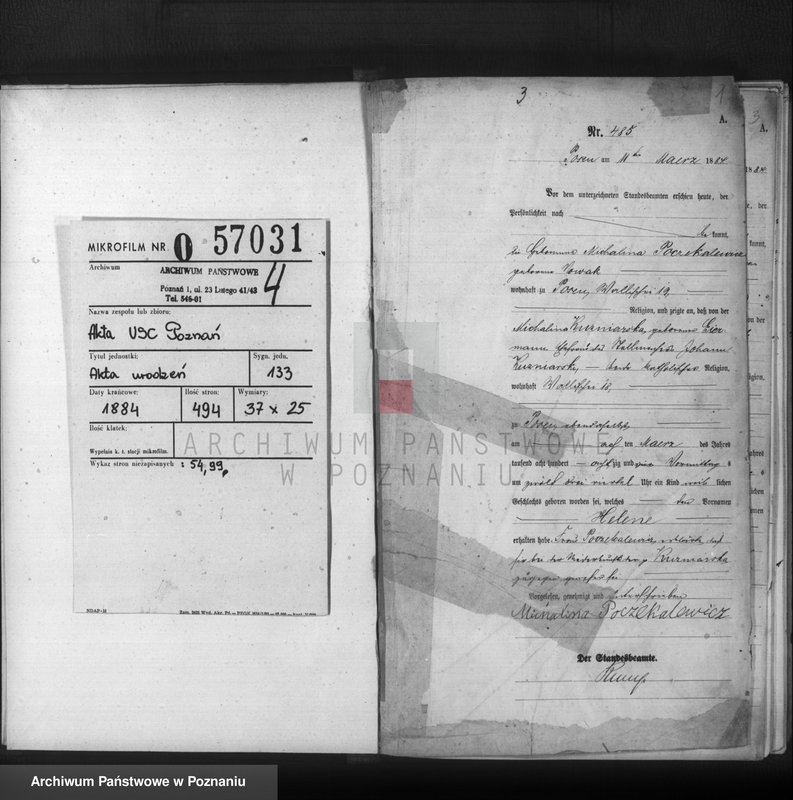 MIKROFILM NR. O 57031
Archiwum
ARCHIWUM PAŃSTWOWE
Poznań 1, ul. 23 Lutego 41/43
Tel. 546-01
4
Nazwa zespołu lub zbioru:
Akta USC Poznań
Tytuł jednostki:
Sygn. jedn.
Akta urodzeń
133
Daty krańcowe:
Ilość stron:
Wymiary:
1884
494
37 x 25
Ilość klatek:
Wypełnia k. t. stacji mikrofilm.
Wykaz stron niezapisanych : 54, 99,
3
1
A.
Nr. 485
Posen am 11ten Maerz 1884
Vor dem unterzeichneten Standesbeamten erschien heute, der
Persönlichkeit nach
be kannt,
die Hebamme Michalina Poczekalewicz
geborene Nowak
wohnhaft zu Posen, Wallischei 19,
Religion, und zeigte an, daß von der
Michalina Kuzniarska, geborene
Ehefrau des Stellmachers Johann
Kuzniarski, beide katholischer Religion,
wohnhaft Wallischei
zu Posen, ebendaselbst
am acht ten Maerz des Jahres
tausend acht hundert achtzig und vier Vormittags
um zwölf drei viertel Uhr ein Kind weib lichen
Geschlechts geboren worden sei, welches den Vornamen
Helene
erhalten habe. Frau Poczekalewicz erklärte, daß
sie bei der Niederkunft der p. Kuzniarska
zugegen gewesen sei
Vorgelesen, genehmigt und unterschrieben
Michalina Poczekalewicz
Der Standesbeamte.
3
A.
ARCHIWUM PAŃSTWOWE
W POZNANIU
Archiwum Państwowe w Poznaniu